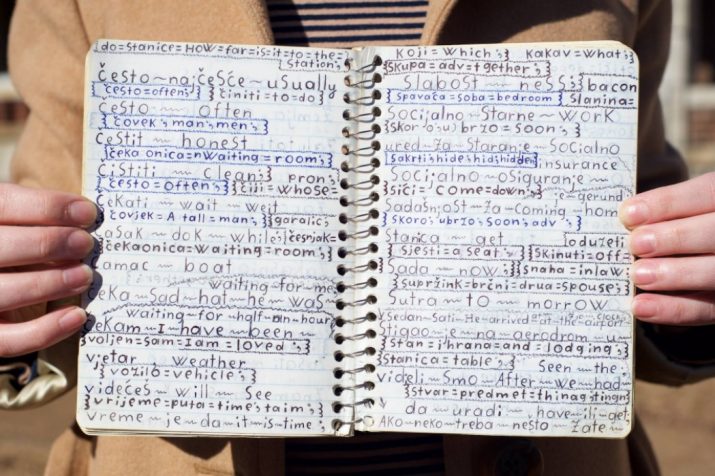 do=Stanice=HOW=far=is=it=to=the=
station;}
često~najčešće~usually
{često=often;} {činiti=to=do}
često ~ often
{čovek;man;men;}
čestit ~ honest
{čeka onica=Waiting=room;}
čistiti ~ clean; pron;
{često=often;} {čiji=whose=
čekati ~ wait ~ weit
{čovjek=A tall=man;} {garalic;
čaSak ~ dok ~ while; {češnjak=
{čekaonica=waiting=room;}
čamac ~ boat
waiting for me
čeka ~ Sad ~ ha ~ he ~ was
waiting=for=half=an=hour
čekam ~ I ~ have ~ been ~
{voljen=sam=I am=loved;}
vjetar ~ weather
{vozilo=vehicle;}
videćeš ~ will ~ See
{vrijeme=puta=time;taim;}
vreme ~ je ~ da ~ it ~ is ~ time;
Koji=which;} kakav=what;
{Skupa=adv=tgether;}
Slabost ~ neSS; {bacon
{spavaća=soba=bedroom} {Slanina=
Socijalno ~ Starne ~ work
{Skoro=(u)brzo=soon;}
ured ~ za ~ Staranje ~ Socijalno
{Sakrti;hide;hid;hidden} insurance
Socijalno ~ osiguranje ~
{Sići=come=down;} ~ je ~ gerund
Sadašnjost ~ za ~ coming ~ hom
{Skoro;ubrzo;soon;adv;}
Stanica ~ get {oduzeti
{Sjesti=a seat;} {Skinuti=off=
Sada ~ now; {Snaha=inlaw;
{Supružnik=brčni=drua=spouse;}
Sutra ~ to ~ morrow
Sedan=Sati=He=arrived=at=the=airport
Stigao=je=na=aerodrom=u
{Stan=ihrana=and=lodging;}
Stanica=table;} Seen the
videli~Smo~After~we~had~
{Stvar=predmet=thing;stingn}
da ~ uradi ~ have~ili~get
Ako~neko~treba~nešto~